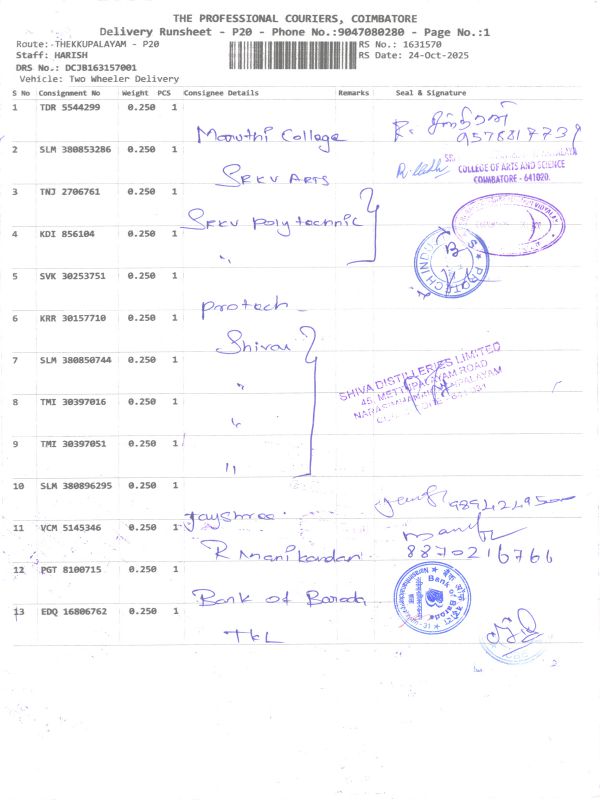 THE PROFESSIONAL COURIERS, COIMBATORE
Delivery Runsheet - P20 - Phone No.:9047080280 - Page No.:1
Route: THEKKUPALAYAM - P20 RS No.: 1631570
Staff: HARISH RS Date: 24-Oct-2025
DRS No.: DCJB163157001
Vehicle: Two Wheeler Delivery
S No Consignment No Weight PCS Consignee Details Remarks Seal & Signature
1 TDR 5544299 0.250 1
Maruthi College
2 SLM 380853286 0.250 1
COLLEGE OF ARTS AND SCIENCE
COIMBATORE - 641020.
SRKV ARTS
3 TNJ 2706761 0.250 1
SRKV Polytechnic
4 KDI 856104 0.250 1
"
5 SVK 30253751 0.250 1
Protech
6 KRR 30157710 0.250 1
Shiva
7 SLM 380850744 0.250 1
SHIVA DISTILLERIES LIMITED
"
8 TMI 30397016 0.250 1
"
9 TMI 30397051 0.250 1
"
10 SLM 380896295 0.250 1
Jayshree
11 VCM 5145346 0.250 1
R Manikandan 8870216766
12 PGT 8100715 0.250 1
Bank of Baroda
Bank of Baroda
13 EDQ 16806762 0.250 1
TKL